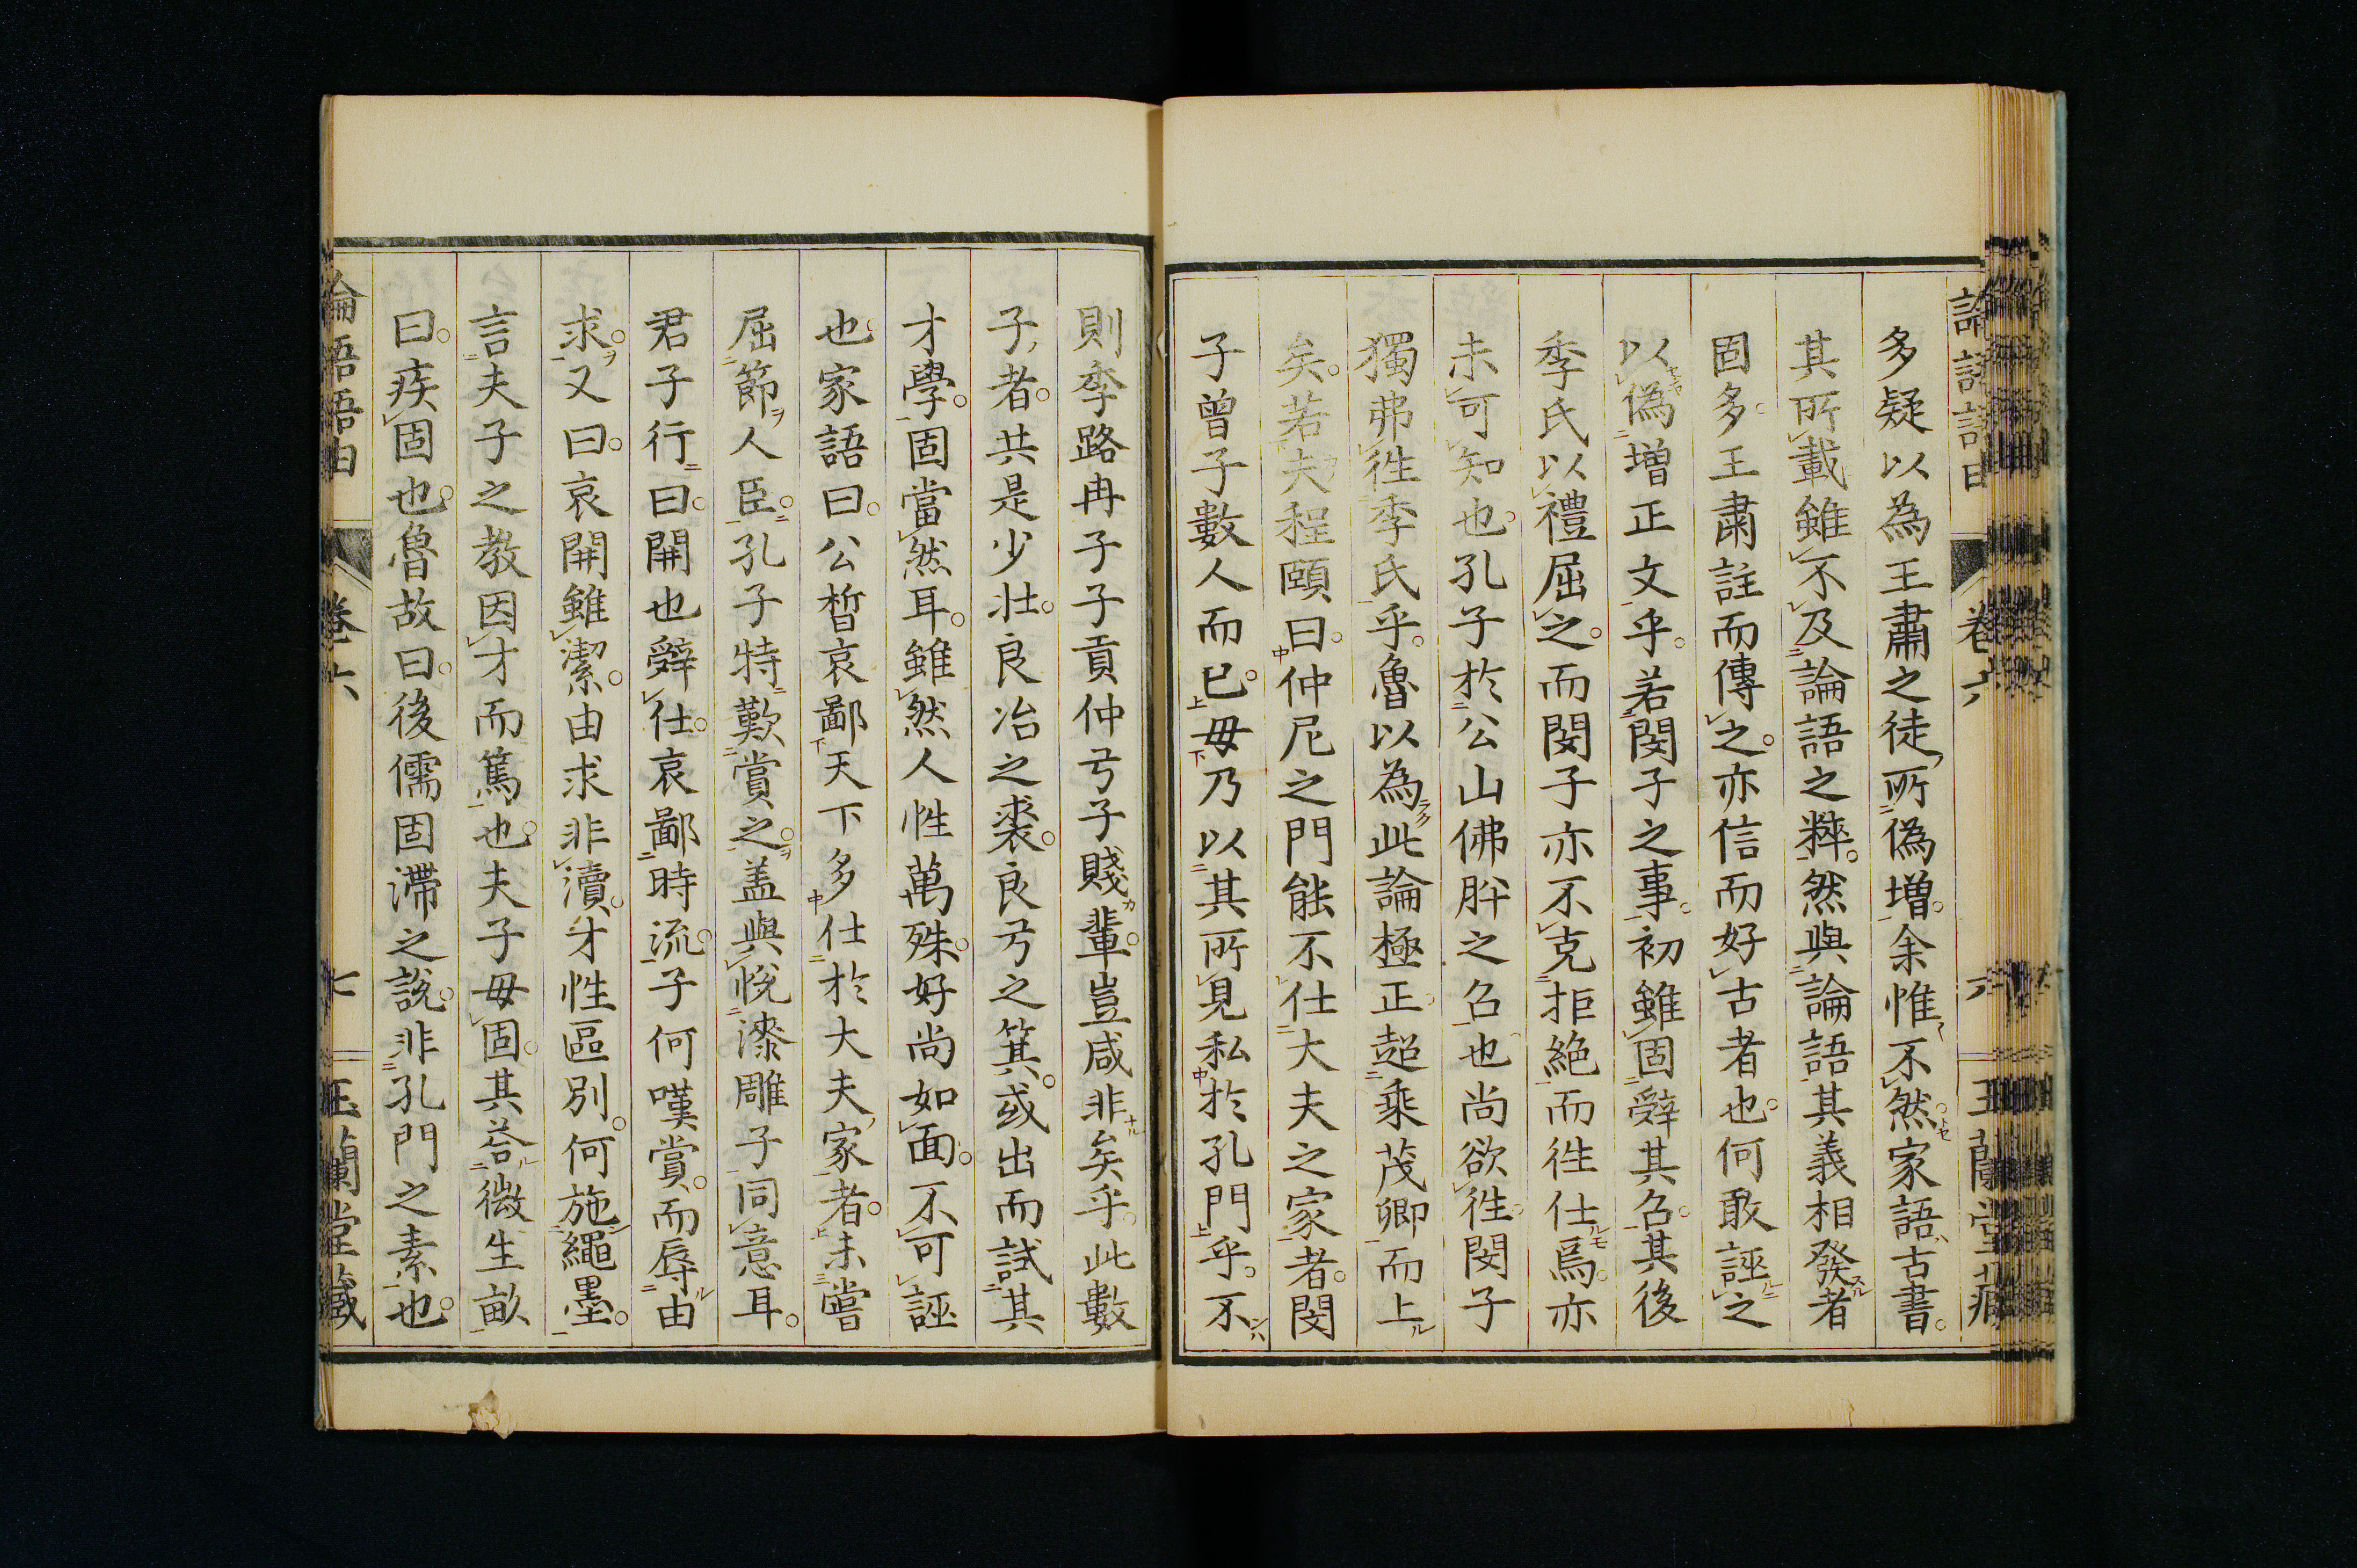 論語語由
卷六
六
玉蘭堂藏
多疑以為王肅之徒所偽增余惟不然家語古書
其所載雖不及論語之粹然與論語其義相發者
固多王肅註而傳之亦信而好古者也何敢誣之
以偽增正文乎若閔子之事初雖固辭其召其後
季氏以禮屈之而閔子亦不克拒絕而徃仕焉亦
未可知也孔子於公山佛肸之召也尚欲徃閔子
獨弗徃季氏乎魯以為此論極正超乘茂卿而上
矣若夫程頤曰仲尼之門能不仕大夫之家者閔
子曾子數人而已毋乃以其所見私於孔門乎不
則季路冉子子貢仲弓子賤輩豈咸非矣乎此數
子者共是少壯良冶之裘良弓之箕或出而試其
才學固當然耳雖然人性萬殊好尚如面不可誣
也家語曰公晳哀鄙天下多仕於大夫家者未嘗
屈節人臣孔子特歎賞之盖與悅漆雕子同意耳
君子行曰開也辭仕哀鄙時流子何嘆賞而辱由
求又曰哀開雖潔由求非瀆才性區別何施繩墨
言夫子之教因才而篤也夫子毋固其荅微生畝
曰疾固也魯故曰後儒固滯之說非孔門之素也
論語語由
卷六
七
玉蘭堂藏